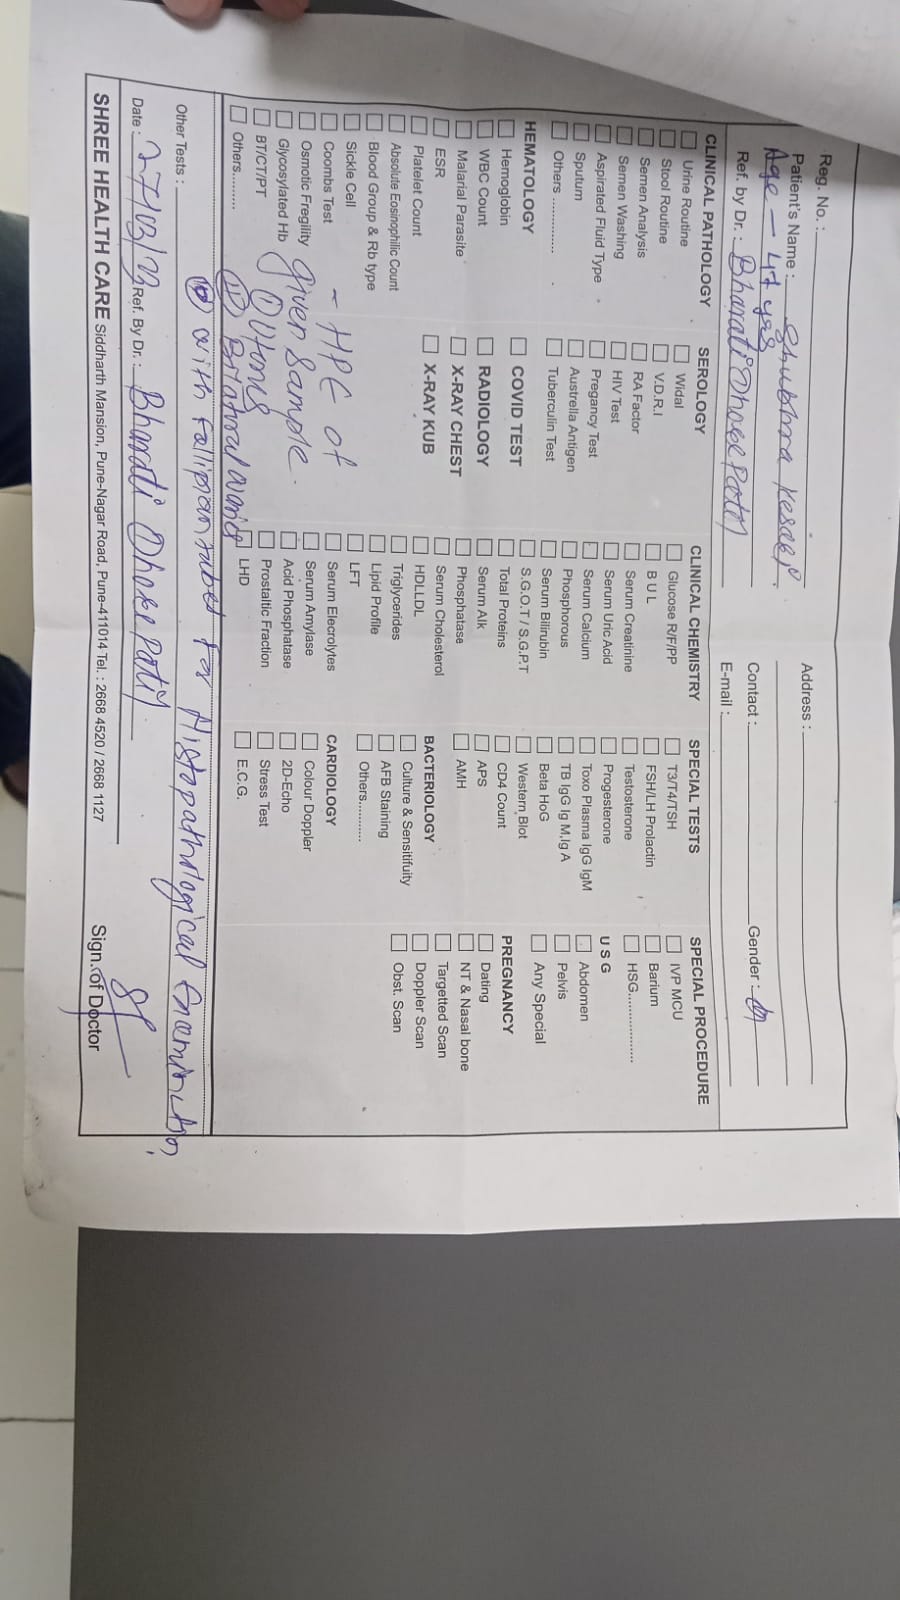 Reg. No. :
Patient's Name : Shubhra Kesari.
Age - 47 yrs
Ref. by Dr. : Bharati Dhoke Patil
Address :
Contact : Gender :
E-mail :
CLINICAL PATHOLOGY
Urine Routine
Stool Routine
Semen Analysis
Semen Washing
Aspirated Fluid Type
Sputum
Others ............
HEMATOLOGY
Hemoglobin
WBC Count
Malarial Parasite
ESR
Platelet Count
Absolute Eosinophilic Count
Blood Group & Rb type
Sickle Cell
Coombs Test
Osmotic Fregility
Glycosylated Hb
BT/CT/PT
Others.........
SEROLOGY
Widal
V.D.R.I
RA Factor
HIV Test
Pregancy Test
Austrella Antigen
Tuberculin Test
COVID TEST
RADIOLOGY
X-RAY CHEST
X-RAY KUB
CLINICAL CHEMISTRY
Glucose R/F/PP
B U L
Serum Creatinine
Serum Uric Acid
Serum Calcium
Phosphorous
Serum Bilirubin
S.G.O.T / S.G.P.T
Total Proteins
Serum Alk
Phosphatase
Serum Cholesterol
HDLLDL
Triglycerides
Lipid Profile
LFT
Serum Elecrolytes
Serum Amylase
Acid Phosphatase
Prostaltic Fraction
LHD
SPECIAL TESTS
T3/T4/TSH
FSH/LH Prolactin
Testosterone
Progesterone
Toxo Plasma IgG IgM
TB IgG Ig M,Ig A
Beta HoG
Western Blot
CD4 Count
APS
AMH
BACTERIOLOGY
Culture & Sensitifuity
AFB Staining
Others............
CARDIOLOGY
Colour Doppler
2D-Echo
Stress Test
E.C.G.
SPECIAL PROCEDURE
IVP MCU
Barium
HSG................
U S G
Abdomen
Pelvis
Any Special
PREGNANCY
Dating
NT & Nasal bone
Targetted Scan
Doppler Scan
Obst. Scan
- HPE of
given sample.
(i) Uterus
(ii) Bilateral ovaries
Other Tests : with fallipian tubes for Histopathological Examination,
Date : 27/03/23 Ref. By Dr. : Bharati Dhoke Patil.
Sign. of Doctor
SHREE HEALTH CARE Siddharth Mansion, Pune-Nagar Road, Pune-411014 Tel. : 2668 4520 / 2668 1127